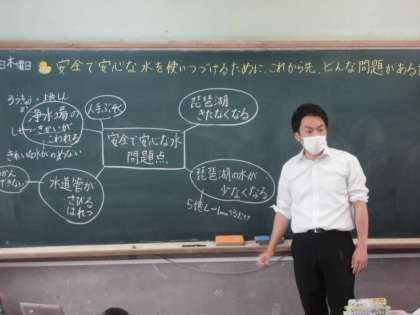 木曜日
安全で安心な水を使いつづけるために、これから先、どんな問題がある
地しん
浄水場の
きかいが
こわれる
きれいな水がのめない
人手ぶそく
安全で安心な水
問題点
琵琶湖
きたなくなる
水道管が
さびる
はれつ
できない
琵琶湖の水が
少なくなる